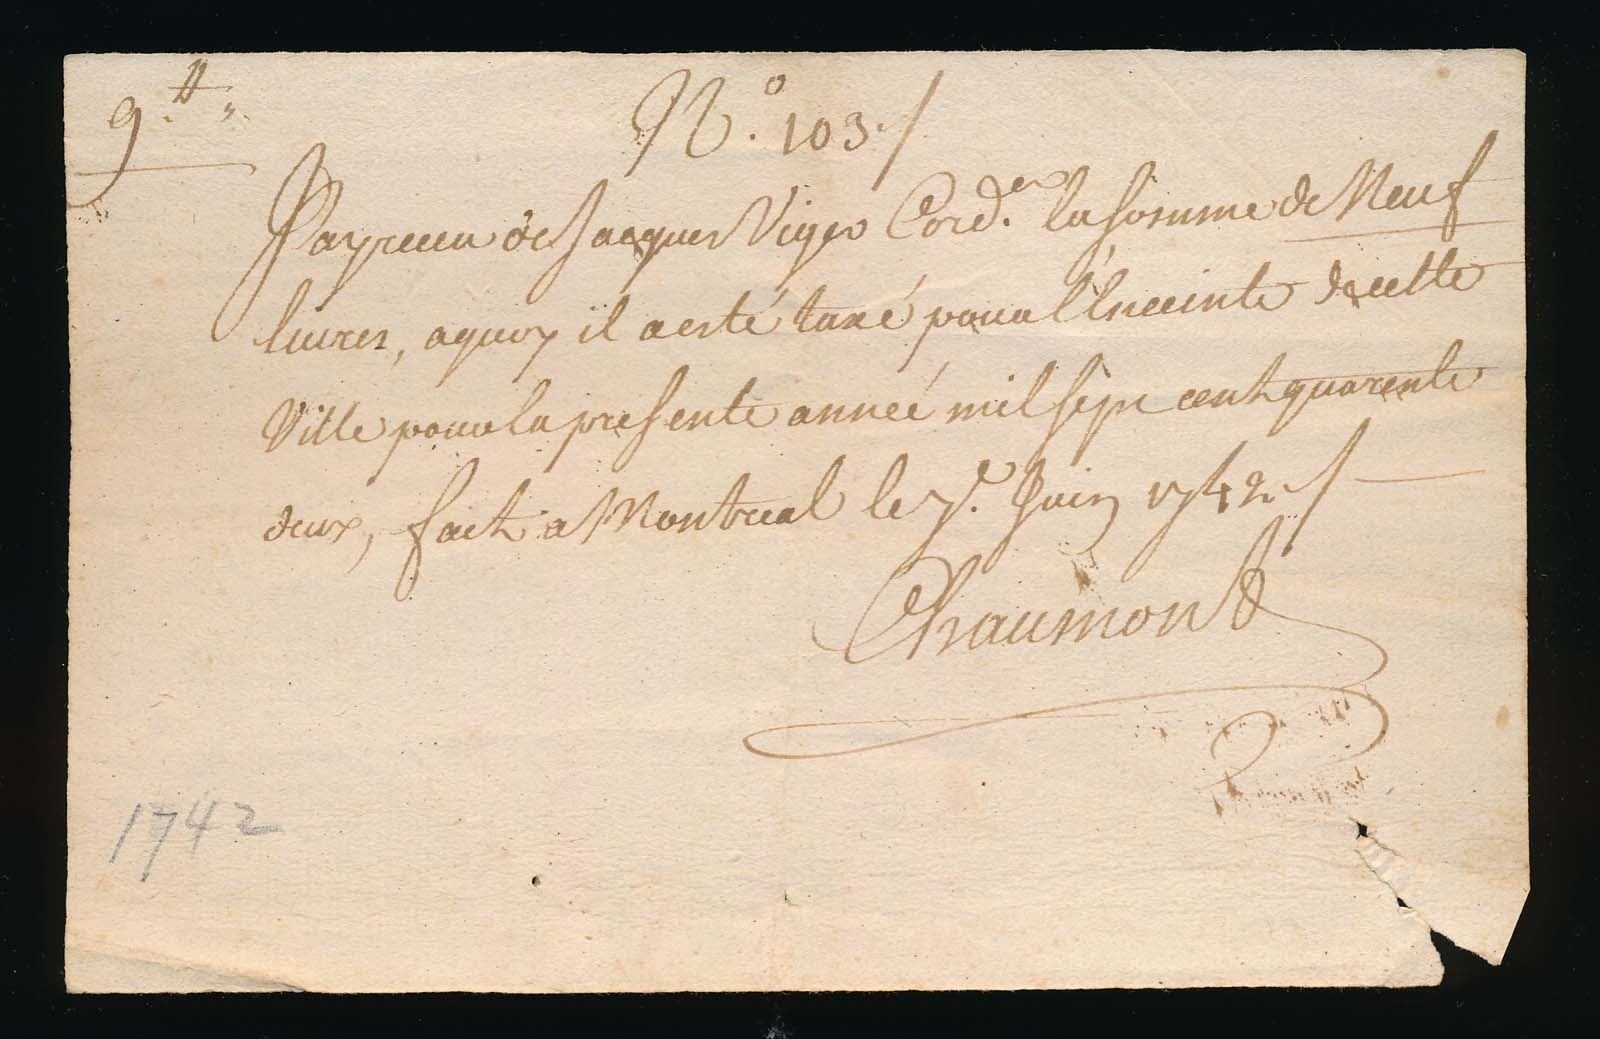 9.tt „
N.º 103./
J'ay receu de Jacques Viger Cord.er la somme de Neuf
liures, aquoy il a esté taxé pour l'Enceinte de cette
Ville pour la presente année mil sept cent quarente
deux, fait a Montreal le 7.e Juin 1742./
Chaumont
1742